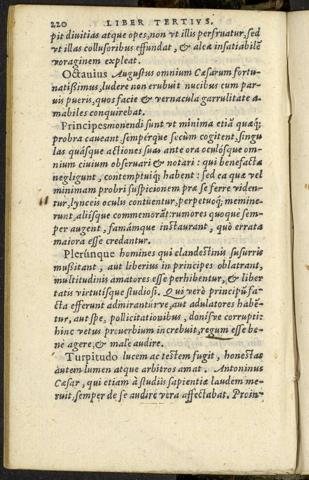 220 LIBER TERTIVS.
pit divitias atque opes, non vt illis perfruatur, sed
vt illas collusoribus effundat, & aleæ insatiabilẽ
voraginem expleat.
Octauius Augustus omnium Cæsarum fortu-
natissimus, ludere non erubuit nucibus cum par-
uis pueris, quos facie & vernacula garrulitate a-
mabiles conquirebat.
Principes monendi sunt vt minima etiã quæq;
probra caueant, sempérque secum cogitent, singu
las quásque actiones suas ante ora oculósque om-
nium ciuium obseruari & notari : qui benefacta
negligunt, contemptuíq; habent : sed ea quæ vel
minimam probri suspicionem præ se ferre viden-
tur, lynceis oculis contuentur, perpetuoq; memine-
runt, aliísque commemorãt: rumores quoque sem-
per augent, famámque instaurant, quò errata
maiora esse credantur.
Plerúnque homines qui clandestinis susurris
mussitant, aut liberius in principes oblatrant,
multitudinis amatores esse perhibentur, & liber
tatis virtutísque studiosi. Qui verò principũ fa-
cta efferunt admiranturve, aut adulatores habẽ-
tur, aut spe, pollicitationibus, donísve corrupti:
hinc vetus prouerbium increbuit, regum esse be-
ne agere, & male audire.
Turpitudo lucem ac testem fugit, honestas
autem lumen atque arbitros amat. Antoninus
Cæsar, qui etiam à studiis sapientiæ laudem me-
ruit, semper de se audire vera affectabat. Proin-